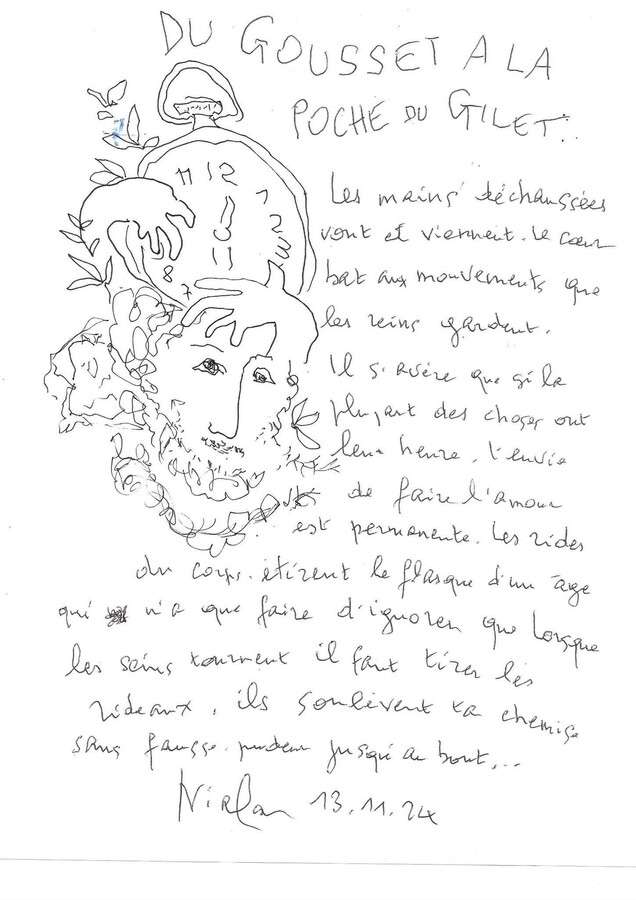 DU GOUSSET A LA
POCHE DU GILET..
11 12 1
2
3
8
7
Les mains déchaussées
vont et viennent. le cœur
bat aux mouvements que
les reins gardent.
Il s'avère que si la
plupart des choses ont
leur heure, l'envie
de faire l'amour
est permanente. Les rides
du corps étirent le flasque d'un âge
qui n'a que faire d'ignorer que lorsque
les seins tournent il faut tirer les
rideaux, ils soulèvent ta chemise
sans fausse pudeur jusqu'au bout,...
13.11.24